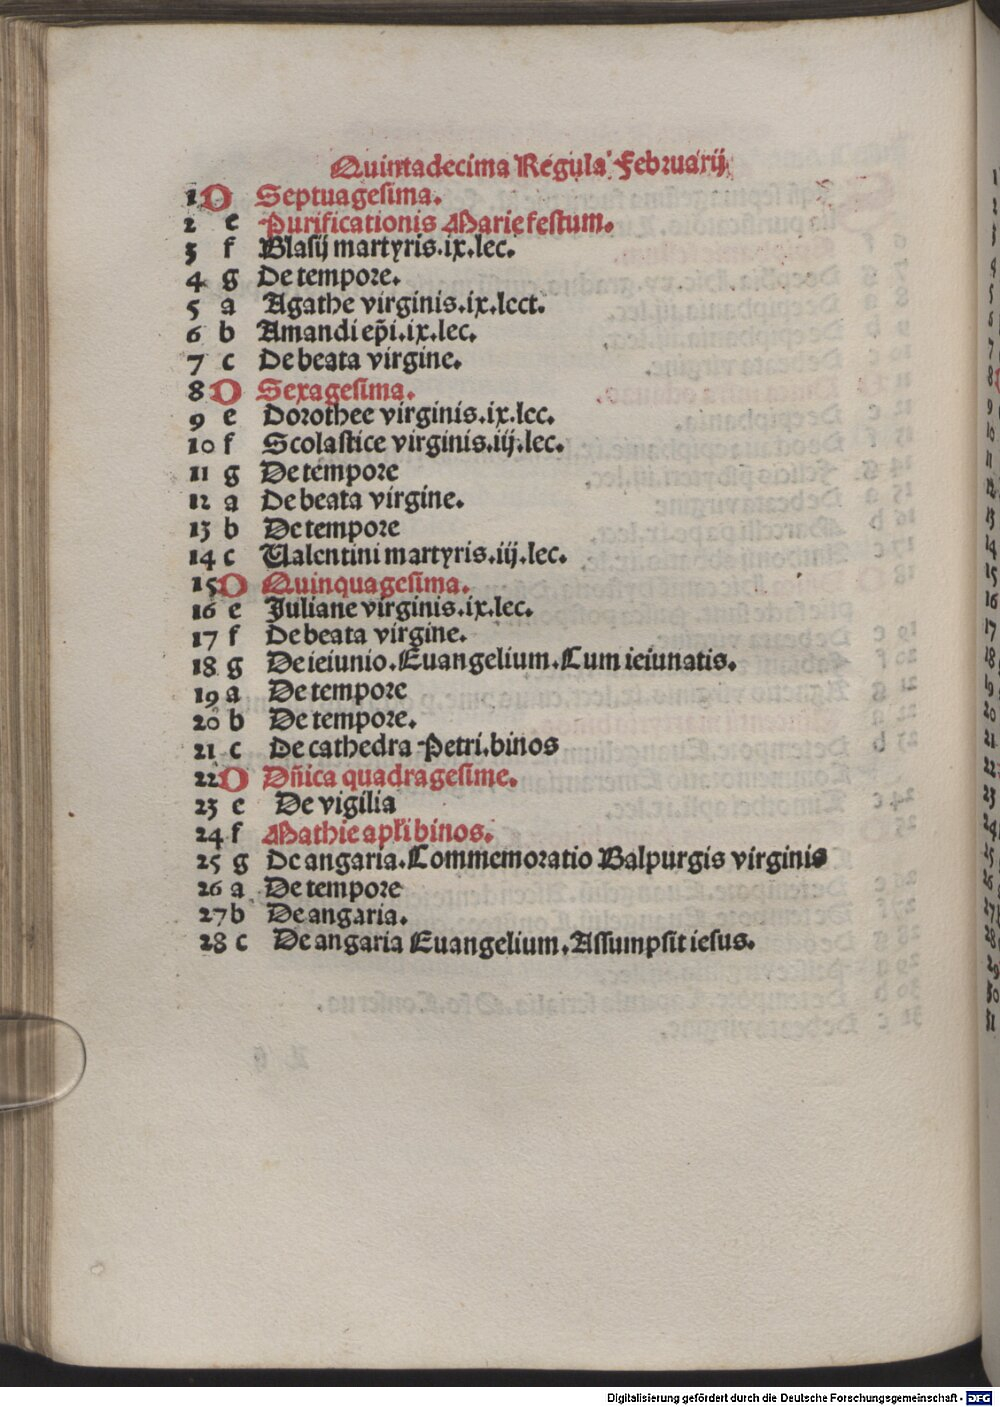 Quintadecima Regula Februarij
1 D Septuagesima.
2 e Purificationis Marie festum.
3 f Blasij martyris.ix.lec.
4 g De tempore.
5 a Agathe virginis.ix.lect.
6 b Amandi ep̃i.ix.lec.
7 c De beata virgine.
8 D Sexagesima.
9 e Dorothee virginis.ix.lec.
10 f Scolastice virginis.iij.lec.
11 g De tempore
12 a De beata virgine.
13 b De tempore
14 c Ualentini martyris.iij.lec.
15 D Quinquagesima.
16 e Juliane virginis.ix.lec.
17 f De beata virgine.
18 g De ieiunio.Euangelium.Cum ieiunatis.
19 a De tempore
20 b De tempore.
21 c De cathedra Petri.binos
22 D Dñica quadragesime.
23 e De vigilia
24 f Mathie apłi binos.
25 g De angaria.Commemoratio Balpurgis virginis
26 a De tempore
27 b De angaria.
28 c De angaria Euangelium.Assumpsit iesus.
Digitalisierung gefördert durch die Deutsche Forschungsgemeinschaft - DFG